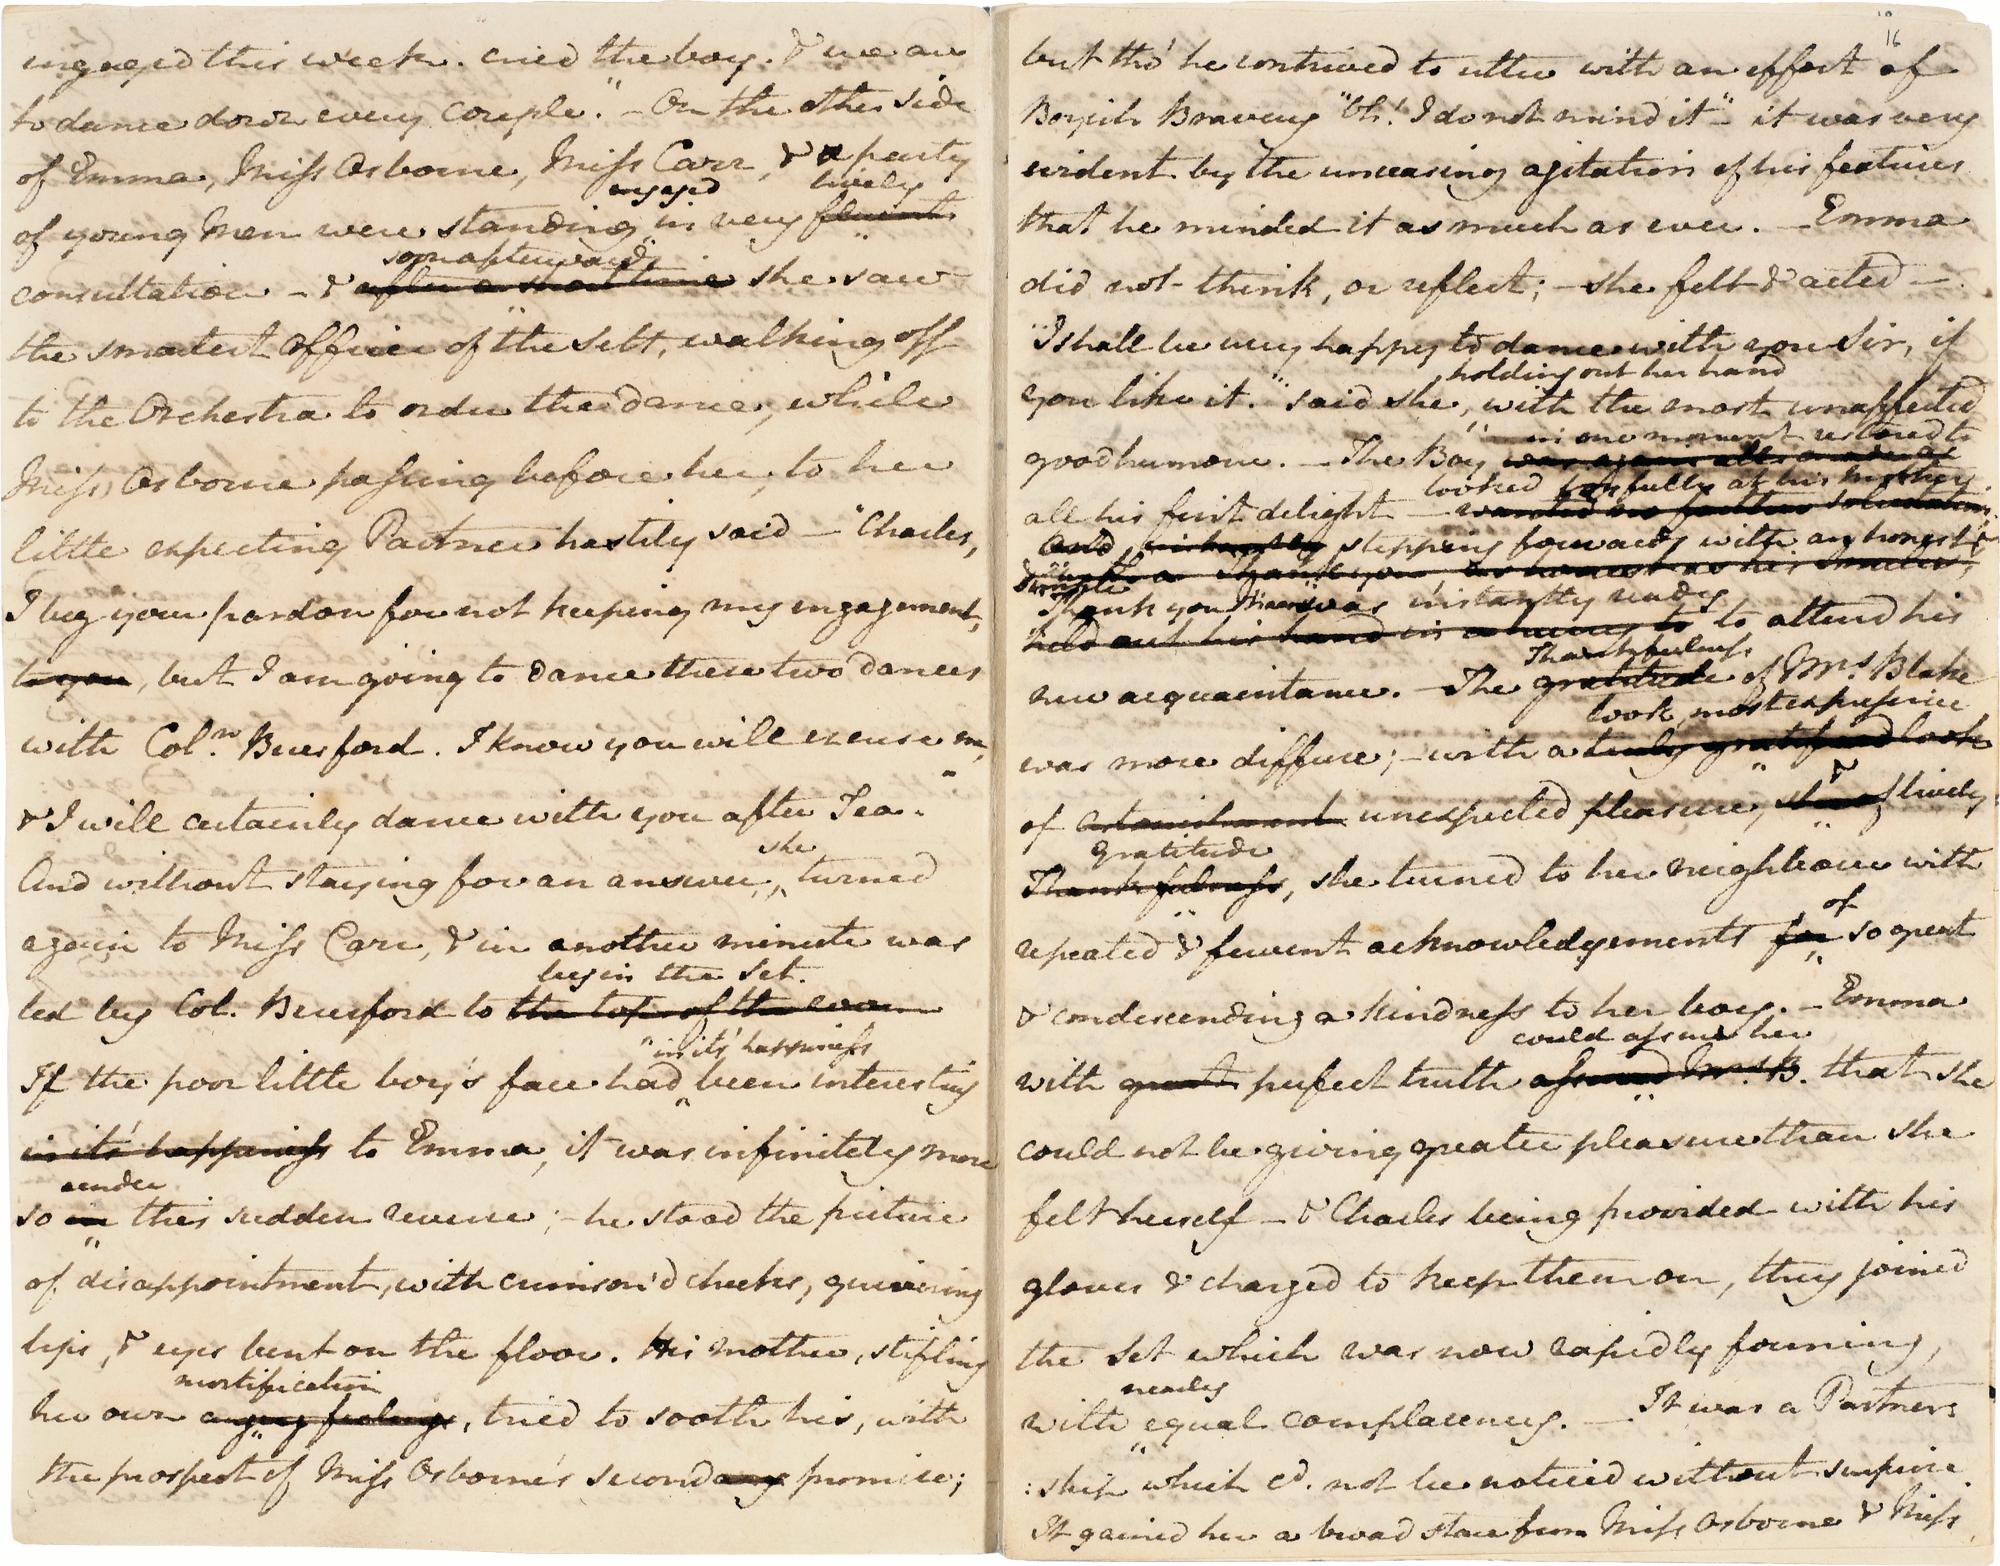 engaged this week. cried the boy. & we are
to dance down every couple." – On the other side
of Emma, Miss Osborne, Miss Carr, & a party
engaged lively
of young Men were standing in very fluent
soon afterwards
consultation – & after a short time she saw
the smartest Officer of the Sett, walking off
to the Orchestra to order the dance, while
Miss Osborne passing before her, to her
little expecting Partner hastily said – "Charles,
I beg your pardon for not keeping my engagement,
to you, but I am going to dance these two dances
with Col.n Beresford. I know you will excuse me,
& I will certainly dance with you after Tea."
she
And without staying for an answer, turned
again to Miss Carr, & in another minute was
begin the set.
led by Col. Beresford to the top of the room
in its' happiness
If the poor little boy's face had been interesting
in its' happiness to Emma, it was infinitely more
under
so in this sudden reverse; – he stood the picture
of disappointment, with crimson'd cheeks, quivering
lips, & eyes bent on the floor. His mother, stifling
mortification
her own angry feelings, tried to sooth his, with
the prospect of Miss Osborne's second promise;
16
but tho' he contrived to utter with an effort of
Boyish Bravery "Oh! I do not mind it" – it was very
evident by the unceasing agitation of his features
that he minded it as much as ever. – Emma
did not think, or reflect; – she felt & acted –.
"I shall be very happy to dance with you Sir, if
holding out her hand
you like it." said she, with the most unaffected
in one moment restored to
good humour. – The Boy was again all made as
looked joyfully at his Mother
all his first delight – wanted no farther solicitation,
and stepping forwards with an honest &
simple with a Thank you as honest as his smiles,
Thank you Ma'am was instantly ready
held out his hand in a hurry to to attend his
Thankfulness
new acquaintance. – The gratitude of Mrs. Blake
look, most expressive
was more diffuse; – with a truly gratified look
&
of astonishment unexpected pleasure, lively
gratitude
Thankfulness, she turned to her neighbour with
of
repeated & fervent acknowledgements for so great
& condescending a kindness to her boy. – Emma
could assure her
with great perfect truth assured Mrs. B. that she
could not be giving greater pleasure than she
felt herself – & Charles being provided with his
gloves & charged to keep them on, they joined
the Set which was now rapidly forming,
nearly
with equal complacency. – It was a Partners
:ship which cd. not be noticed without surprise.
It gained her a broad stare from Miss Osborne & Miss